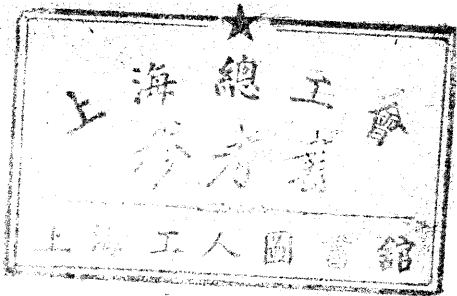 上海總工會
參考書
上海工人圖書館